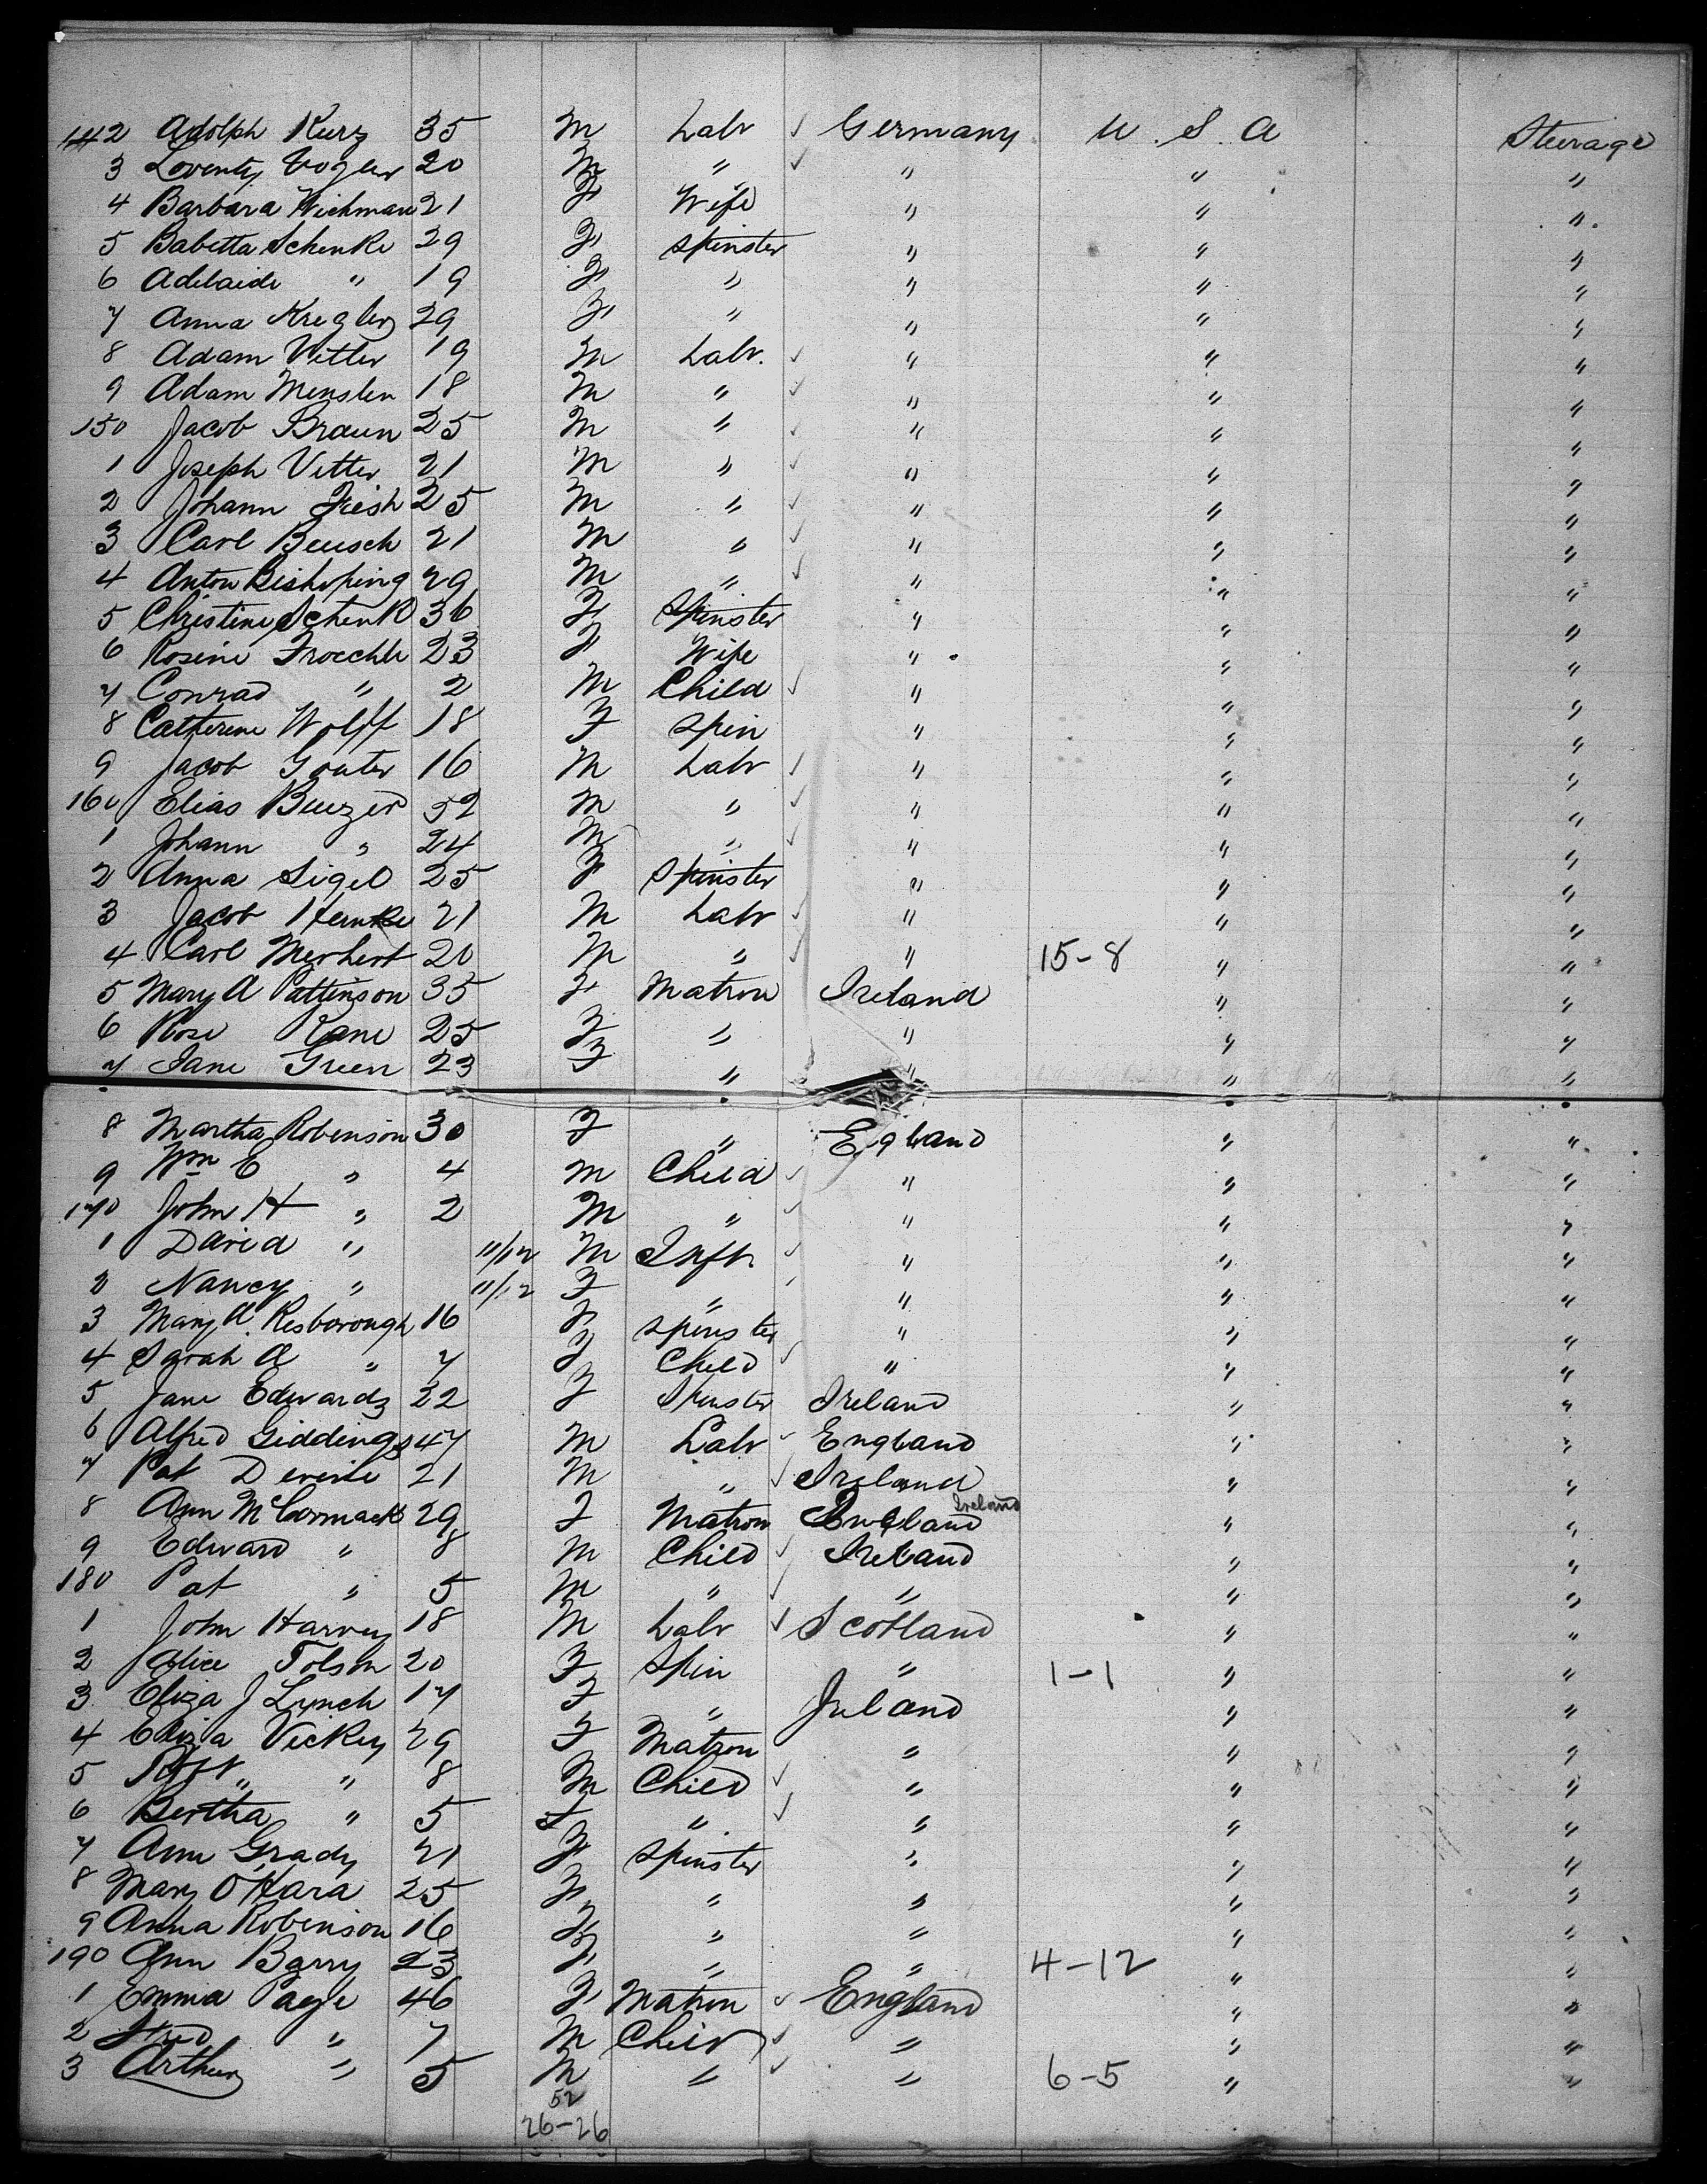 142 Adolph Kurz 35 M Labr ✓ Germany U. S. A Steerage
3 Lorentz Vogler 20 M " ✓ " " "
4 Barbara Wichman 21 F Wife " " "
5 Babetta Schenke 29 F Spinster " " "
6 Adelaide " 19 F " " " "
7 Anna Kregler 29 F " " " "
8 Adam Vetter 19 M Labr. ✓ " " "
9 Adam Menslen 18 M " ✓ " " "
150 Jacob Braun 25 M " ✓ " " "
1 Joseph Vetter 21 M " ✓ " " "
2 Johann Fiesh 25 M " ✓ " " "
3 Carl Beusch 21 M " ✓ " " "
4 Anton Bishoping 29 M " ✓ " " "
5 Christine Schenk 36 F Spinster " " "
6 Rosine Froechle 23 F Wife " " "
7 Conrad " 2 M Child ✓ " " "
8 Catherine Wolff 18 F Spin " " "
9 Jacob Gouter 16 M Labr ✓ " " "
160 Elias Buzer 52 M " ✓ " " "
1 Johann " 24 M " ✓ " " "
2 Anna Sigel 25 F Spinster " " "
3 Jacob Henke 21 M Labr ✓ " " "
4 Carl Merhert 20 M " ✓ " 15-8 " "
5 Mary A Pattinson 35 F Matron Ireland " "
6 Rose Kane 25 F " " " "
7 Jane Green 23 F " " " "
8 Martha Robenson 30 F " Egland " "
9 Wm E " 4 M Child ✓ " " "
170 John H " 2 M " ✓ " " "
1 David " 11/12 M Inft ✓ " " "
2 Nancy " 11/12 F " ✓ " " "
3 Mary A. Resborough 16 F Spinster " " "
4 Sarah A " 7 F Child ✓ " " "
5 Jane Edwards 22 F Spinster Ireland " "
6 Alfred Giddings 47 M Labr ✓ England " "
7 Pat Devine 21 M " ✓ Ireland " "
8 Ann McCormack 29 F Matron England Ireland " "
9 Edward " 8 M Child ✓ Ireland " "
180 Pat " 5 M " ✓ " " "
1 John Harvey 18 M Labr ✓ Scotland " "
2 Alice Tolson 20 F Spin " 1-1 " "
3 Eliza J Lynch 17 F " Ireland " "
4 Eliza Vickey 29 F Matron " " "
5 " 8 M Child ✓ " " "
6 Bertha " 5 F " ✓ " " "
7 Ann Grady 21 F Spinster " " "
8 Mary O'Hara 25 F " " " "
9 Anna Robenson 16 F " " " "
190 Ann Barry 23 F " " 4-12 " "
1 Emma Page 46 F Matron ✓ England " "
2 Fred " 7 M Child ✓ " " "
3 Arthur " 5 M " ✓ " 6-5 " "
52
26-26